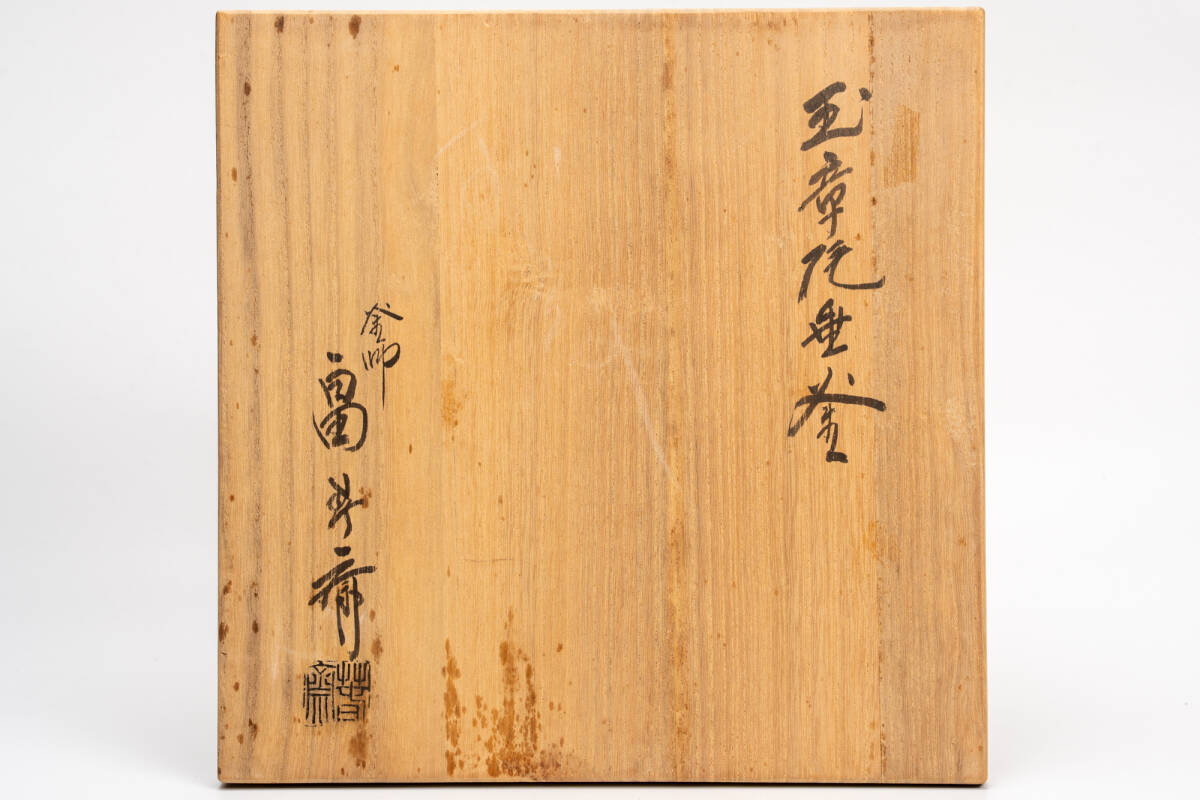 玉章尾垂釜
釜師
畠春斎
春斎